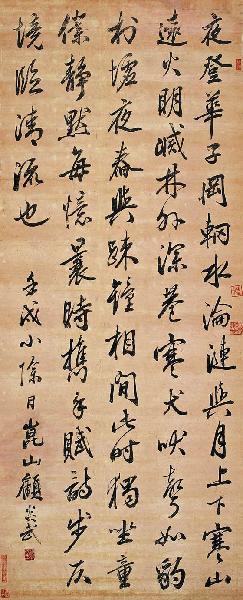 夜登華子岡輞水淪漣與月上下寒山
遠火明滅林外深巷寒犬吠聲如豹
村墟夜舂與踈鐘相間此時獨坐童
僕靜默每憶曩時攜手賦詩步仄
境臨清流也
壬戌小除日崑山顧炎武